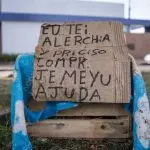 EU TEI
ALERCHIA
Y PRECISO
COMPR.
JE MEYU
AJUDA